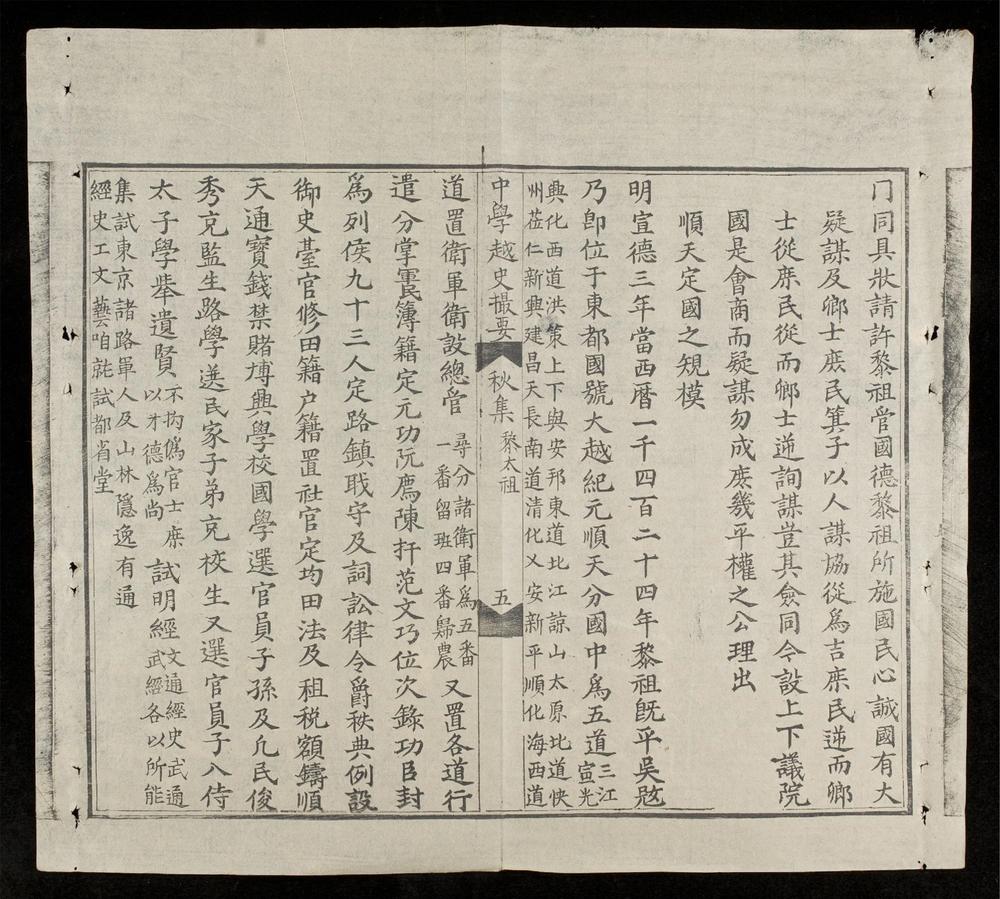 门同具狀請許黎祖官國德黎祖所施國民心誠國有大
疑謀及鄉士庶民箕子以人謀協從爲吉庶民逆而鄉
士從庶民從而鄉士逆詢謀豈其僉同今設上下議院
國是會商而疑謀勿成庶幾平權之公理出
順天定國之規模
明宣德三年當西曆一千四百二十四年黎祖旣平吳寇
乃卽位于東都國號大越紀元順天分國中爲五道三江
宣光
興化西道洪策上下與安邦東道北江諒山太原北道快
州莅仁新興建昌天長南道清化乂安新平順化海西道
中學越史撮要
秋集
黎太祖
五
道置衛軍衛設總管
尋分諸衛軍爲五番
一番留班四番歸農
又置各道行
遣分掌軍民簿籍定元功阮廌陳扞范文巧位次錄功臣封
爲列侯九十三人定路鎮職守及詞訟律令爵秩典例設
御史臺官修田籍户籍置社官定均田法及租税額鑄順
天通寳錢禁賭博興學校國學選官員子孫及凡民俊
秀充監生路學選民家子弟充校生又選官員子入侍
太子學舉遺賢
不拘僞官士庶
以才德爲尚
試明經
文通經史武通
武經各以所能
集試東京諸路軍人及山林隱逸有通
經史工文藝咱就試都省堂